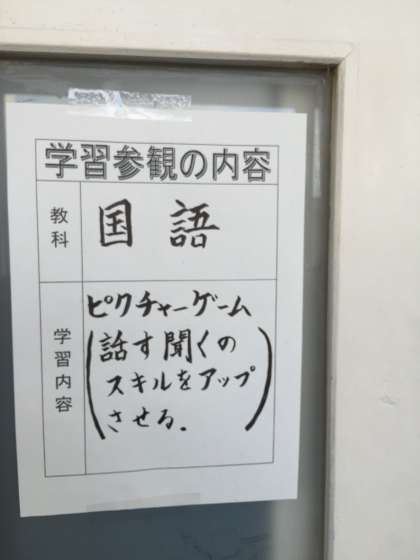 学習参観の内容
教科
国語
学習内容
ピクチャーゲーム
(話す聞くの
スキルをアップ
させる.)